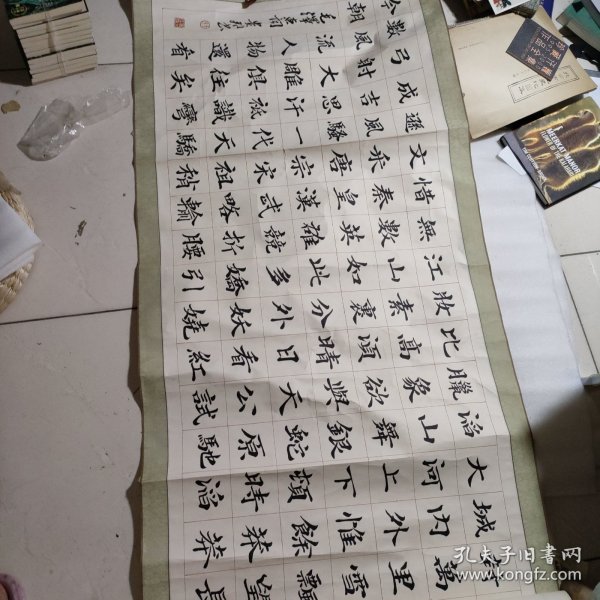 萬里雪飄望長
城內外惟餘莽莽
大河上下頓時滔
滔山舞銀蛇原馳
臘象欲與天公試
比高須晴日看紅
妝素裹分外妖嬈
江山如此多嬌引
無數英雄競折腰
惜秦皇漢武略輸
文采唐宗宋祖稍
遜風騷一代天驕
成吉思汗祗識彎
弓射大雕俱往矣
數風流人物還看
今朝
毛澤東詞
MEERKAT MANOR
孔夫子旧书网
www.kongfz.com